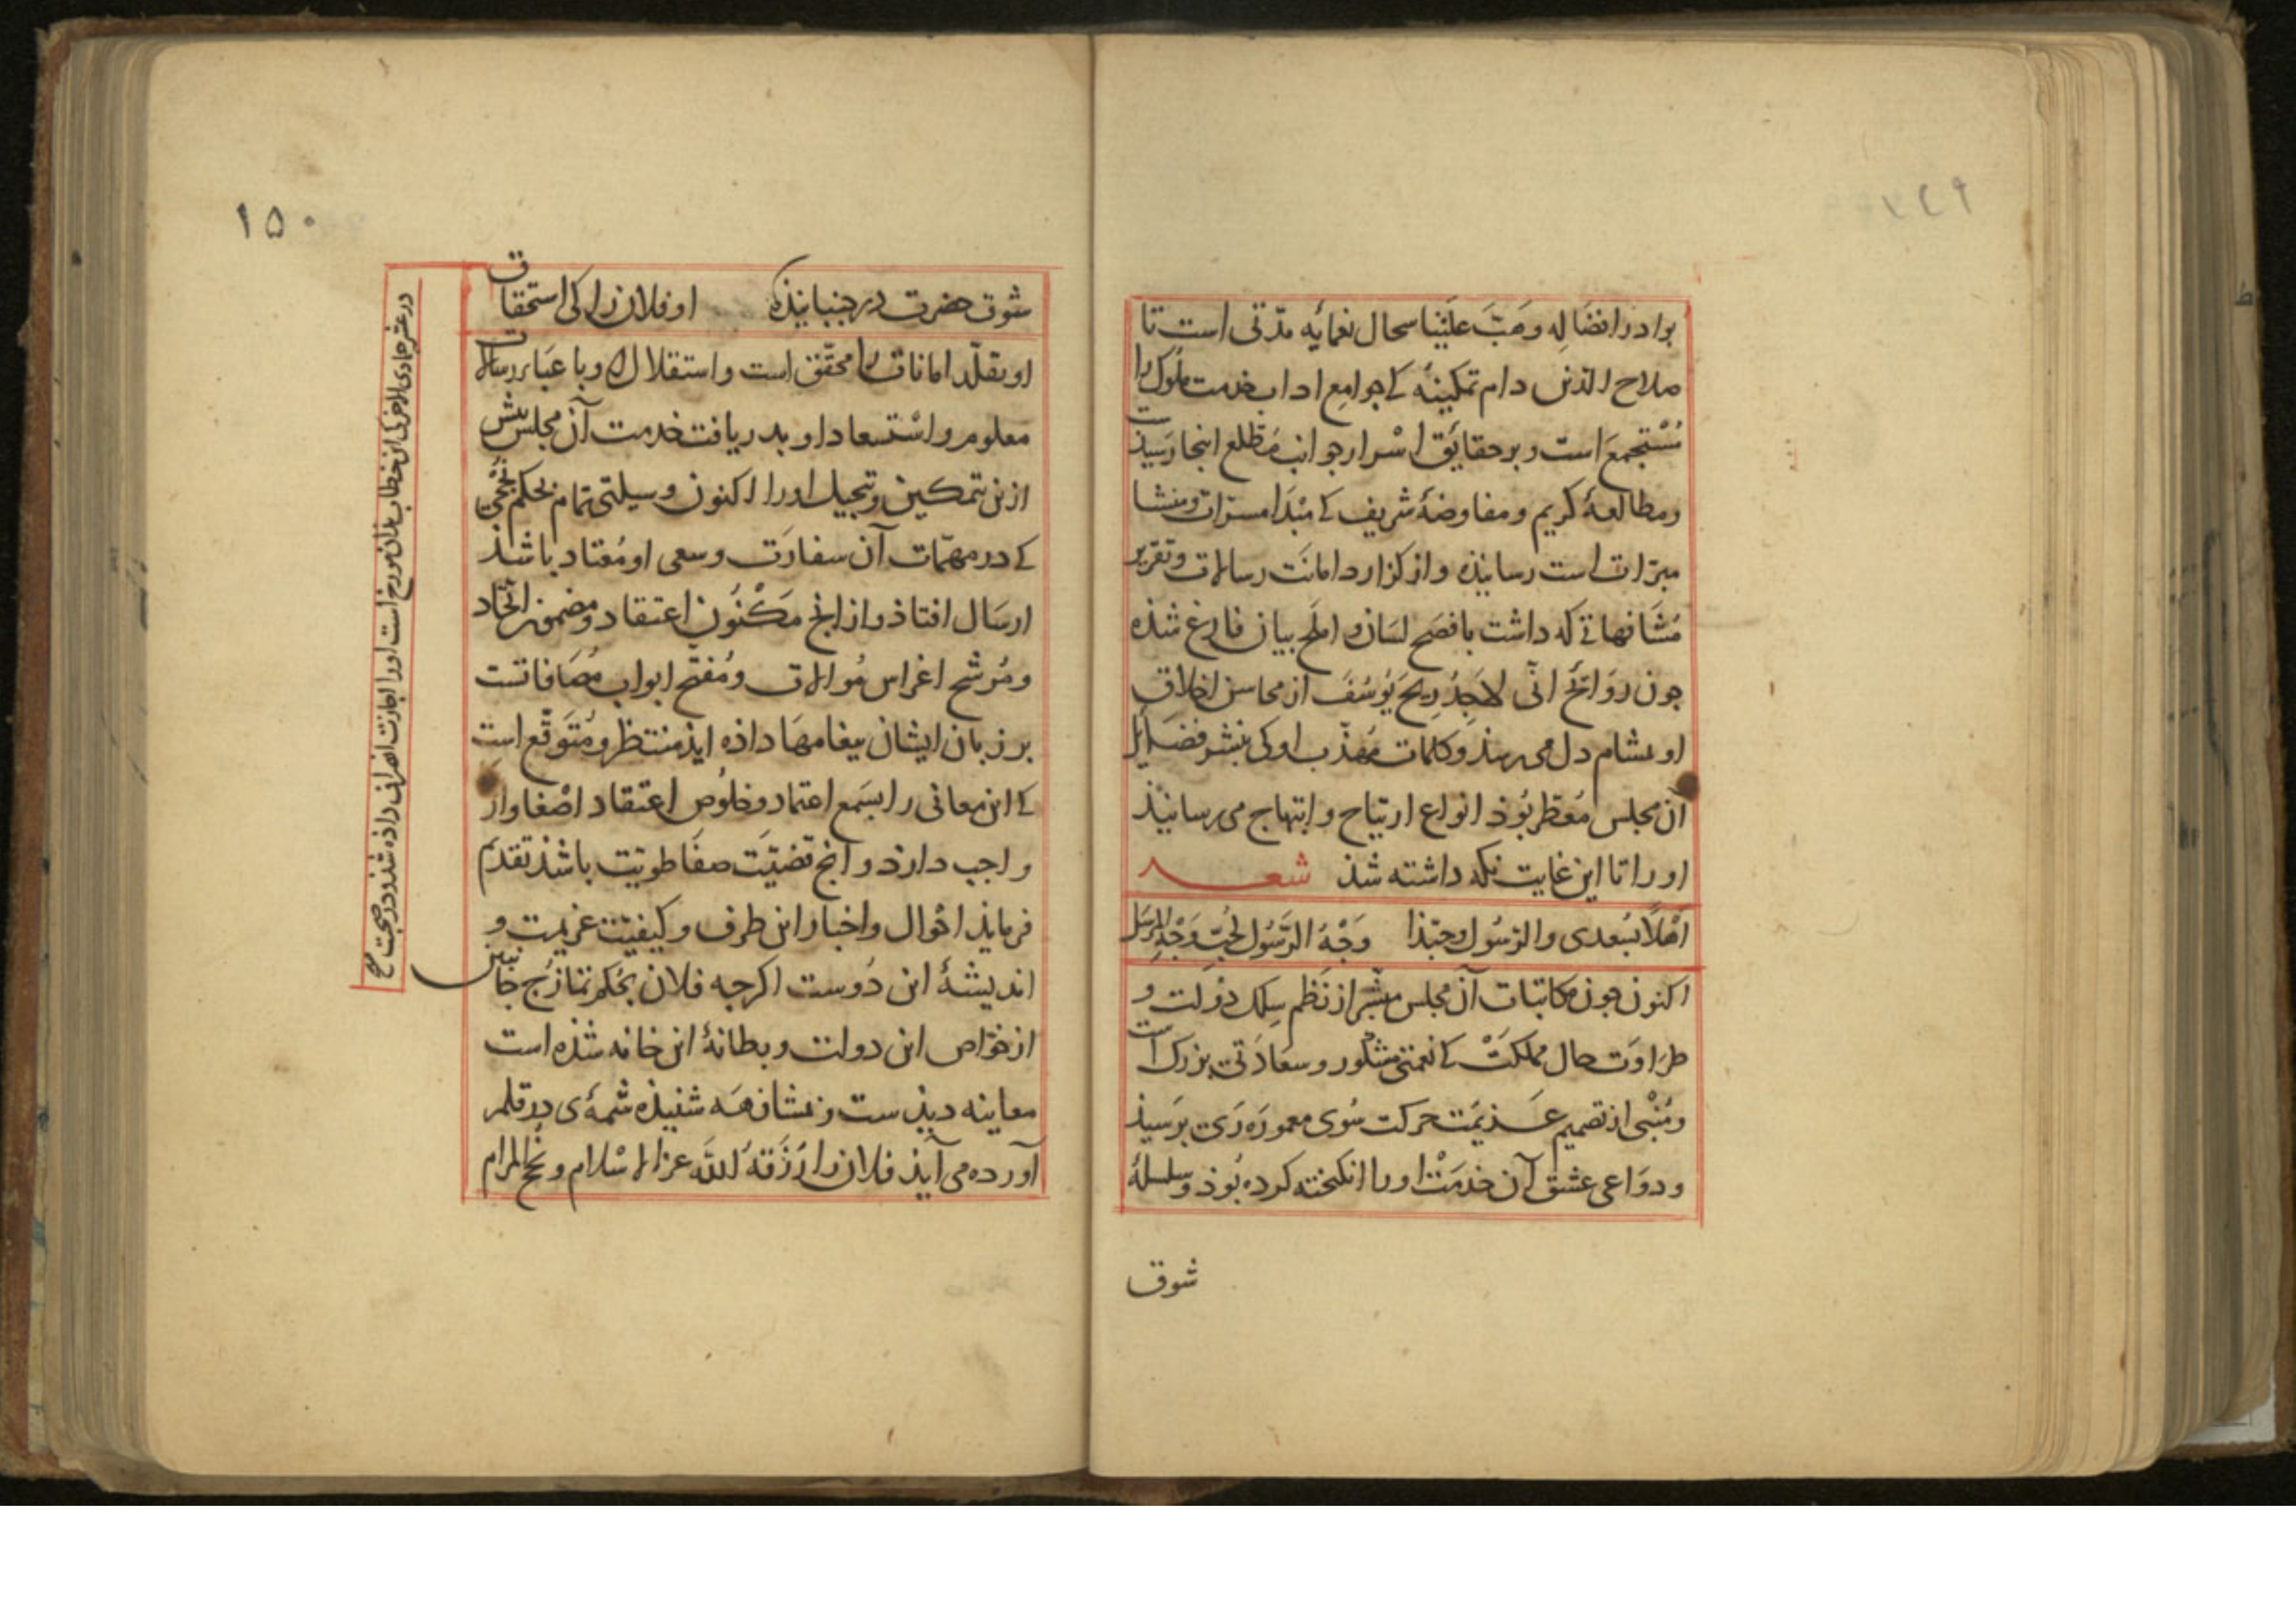 ١٤٩
بوادر افضاله وهَبَّ علینا سحال نعمائه مدّتی است تا
صلاح الدین دام تمکینهٔ کی جوامع اداب خدمت ملوک را
مُسْتجمعَ است و بر حقایق اسْرار جوانب مُطّلع اینجا رسیذست
ومطالعهٔ کریم و مفاوضهٔ شریف کی مَبْدَا مسرّات و منشا
مبرّات است رسانیذه و از کزارد امانَت رسالات و تقریر
مُشَافهاتی که داشت بافصَح لسَان و املح بیان فارغ شذه
جون رَوَائح انّی لاَجِدُ رِیحَ یُوسُفَ از محاسن اخلاق
او بمشام دل می رسذ و کلمات مهذّب او کی بنشر فضَایل
آن مجلس مُعَطّر بُوذ انواع ارتیاح و ابتهاج می رسانیذ
اورا تا این غایت نکه داشته شذ شعر
اَهْلًا بسُعدی والرّسُول وحبّذا وَجْهُ الرّسُول لحُبّ وَجْهِ المُرسِل
اکنون جون مکاتبات آن مجلس مبشّر از نَظم سِلک دَوْلت و
طَرَاوَت حال مملکتْ کی نعمتی مشکور و سعادَتی بزرک است
ومُنْبی از تصمیم عَزیمَت حرکت سُوی معموره رَی برسیذ
و دوَاعی عشق آن خدمَتْ اورا انکیخته کرده بُوذ و سلسلهٔ
شوق
١٥٠
شوق حضرت درجنبانیذه او فلان را کی استحقاق
او بتقلّد امانات را محقّق است و استقلال او با عَباء رسالات
معلوم و استسعاد او بدریافت خدمت آن مجلس بیش
ازین تمکین و تبجیل اورا اکنون وسیلتی تمام بحکم
کی در مهمّات آن سفارَت و سعی او مُعتاد باشذ
ارسَال افتاذ و از انج مَکْنُون اعتقاد و مضمون اتّحاد
ومُرشّح اغراس مُوالات ومُفتّح ابواب مُصَافاتست
بر زبان ایشان بیغامهَا داذه ایذ منتظر و مُتَوقّع است
کی این معانی را بسَمع اعتماد و خلُوص اعتقاد اصْغا واز
واجب دارذ و انج قضیّت صفَا طویّت باشذ تقدیم
فرمایذ احْوال و اخبار این طرف و کیفیّت عزیمت و
اندیشهٔ این دُوست اکرجه فلان بحُکم تمازُج جانبین
از خوّاص این دولت و بطانهٔ این خانه شذه است
معاینه دیذست و زیشان همَه شنیذه شمهٔ ی در قلم
آورده می آیذ فلان را رَزَقهُ اللّه عز الاسْلام و نُجح المرام
در عشر جمادی الاخر کی این خطاب بذان مورخ است اورا اجازت انصراف داذه شذ و در صحبت